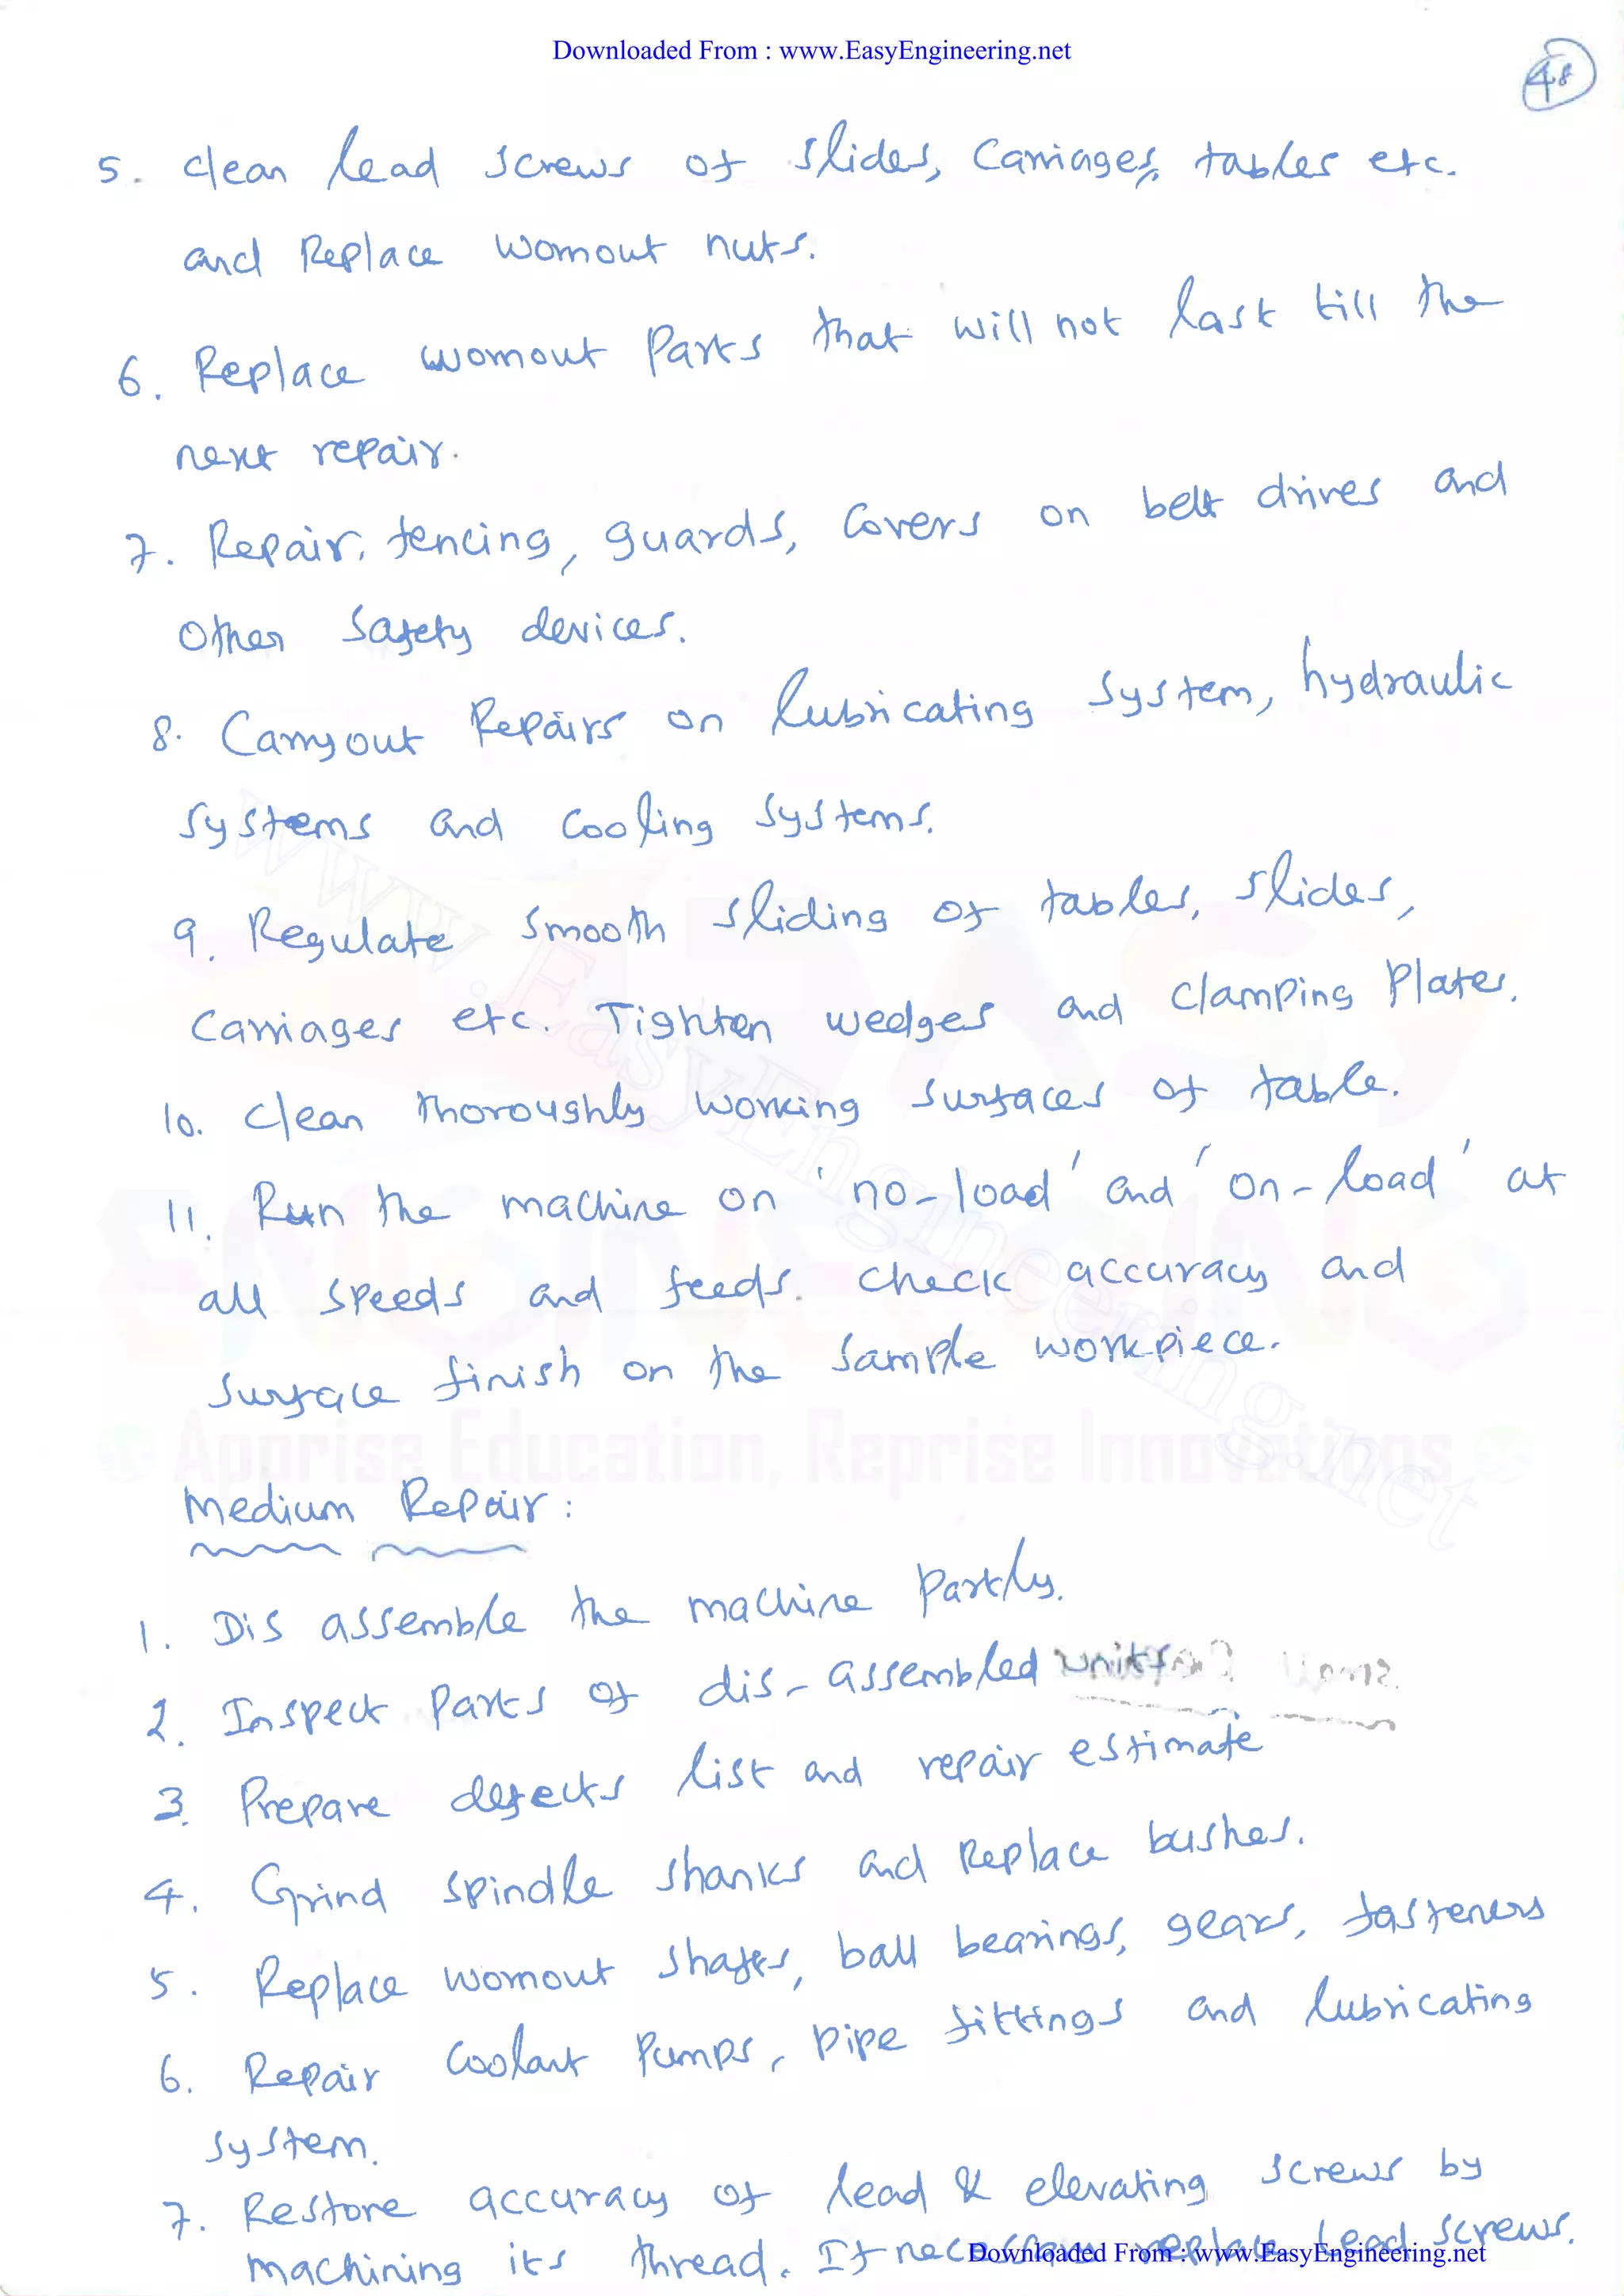 Downloaded From : www.EasyEngineering.net
48
5. Clean lead screws of slides, Carriages, tables etc.
and Replace wornout nuts.
6. Replace wornout Parts that will not last till the
next repair.
7. Repair, fencing, guards, Covers on belt drives and
Other Safety devices.
8. Carryout Repairs on lubricating System, hydraulic
Systems and Cooling Systems.
9. Regulate Smooth sliding of tables, slides,
Carriages etc. Tighten wedges and clamping Plates.
10. Clean thoroughly working Surfaces of table.
11. Run the machine on 'no-load' and 'on-load' at
all speeds and feeds. Check accuracy and
Surface finish on the Sample workpiece.
www.EasyEngineering.net
EASY
ENGINEERING
Apprise Education, Reprise Innovations
Medium Repair :
1. Dis assemble the machine Partly.
2. Inspect Parts of dis-assembled units
3. Prepare defects list and repair estimate
4. Grind spindle shanks and Replace bushes.
5. Replace wornout shafts, ball bearings, gears, fasteners
6. Repair Coolant Pumps, Pipe fittings and lubricating
System.
7. Restore accuracy of lead & elevating screws by
machining its thread. If necessary replace lead screws.
Downloaded From : www.EasyEngineering.net